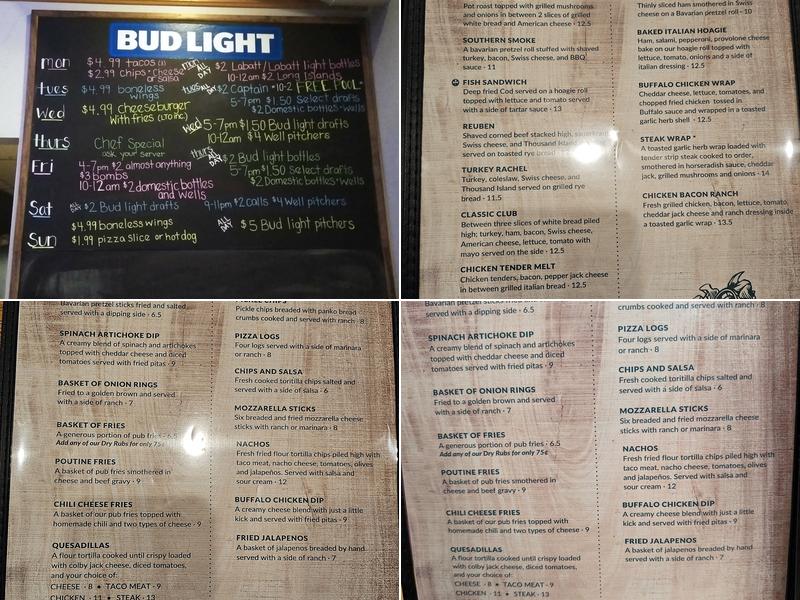 BUD LIGHT
mon $4.99 tacos (3)
$2.99 chips + cheese or salsa
mon ALL DAY $2 Labatt/Lobatt light bottles
10-12am $2 Long Islands
tues $4.99 boneless wings
tues ALL DAY $2 Captain *10-2 FREE POOL*
5-7pm $1.50 Select drafts
$2 Domestic bottles + wells
Wed $4.99 cheeseburger
with fries
Wed 5-7pm $1.50 Bud light drafts
10-12am $4 Well pitchers
thurs Chef Special
ask your server
thurs ALL DAY $2 Bud light bottles
5-7pm $1.50 Select drafts
$2 Domestic bottles + wells
Fri 4-7pm $2 almost anything
$3 bombs
10-12am $2 domestic bottles
and wells
Sat ALL DAY $2 Bud light drafts 9-11pm $2 calls $4 Well pitchers
Sun $4.99 boneless wings
$1.99 pizza slice or hot dog
ALL DAY $5 Bud light pitchers
Pot roast topped with grilled mushrooms
and onions in between 2 slices of grilled
white bread and American cheese · 12.5
SOUTHERN SMOKE
A bavarian pretzel roll stuffed with shaved
turkey, bacon, Swiss cheese, and BBQ
sauce · 11
FISH SANDWICH
Deep fried Cod served on a hoagie roll
topped with lettuce and tomato served
with a side of tartar sauce · 13
REUBEN
Shaved corned beef stacked high,
Swiss cheese, and Thousand Island
served on toasted rye bread
TURKEY RACHEL
Turkey, coleslaw, Swiss cheese, and
Thousand Island served on grilled rye
bread · 11.5
CLASSIC CLUB
Between three slices of white bread piled
high; turkey, ham, bacon, Swiss cheese,
American cheese, lettuce, tomato with
mayo served on the side · 12.5
CHICKEN TENDER MELT
Chicken tenders, bacon, pepper jack cheese
in between grilled italian bread · 12.5
Thinly sliced ham smothered in Swiss
cheese on a Bavarian pretzel roll · 10
BAKED ITALIAN HOAGIE
Ham, salami, pepperoni, provolone cheese
bake on our hoagie roll topped with
lettuce, tomato, onions and a side of
italian dressing · 12.5
BUFFALO CHICKEN WRAP
Cheddar cheese, lettuce, tomatoes, and
chopped fried chicken tossed in
Buffalo sauce and wrapped in a toasted
garlic herb shell · 12.5
STEAK WRAP *
A toasted garlic herb wrap loaded with
tender strip steak cooked to order,
smothered in horseradish sauce, cheddar
jack, grilled mushrooms and onions · 14
CHICKEN BACON RANCH
Fresh grilled chicken, bacon, lettuce, tomato,
cheddar jack cheese and ranch dressing inside
a toasted garlic wrap · 13.5
Bavarian pretzel sticks fried and salted
served with a dipping side · 6.5
SPINACH ARTICHOKE DIP
A creamy blend of spinach and artichokes
topped with cheddar cheese and diced
tomatoes served with fried pitas · 9
BASKET OF ONION RINGS
Fried to a golden brown and served
with a side of ranch · 7
BASKET OF FRIES
A generous portion of pub fries · 6.5
Add any of our Dry Rubs for only 75¢
POUTINE FRIES
A basket of pub fries smothered in
cheese and beef gravy · 9
CHILI CHEESE FRIES
A basket of our pub fries topped with
homemade chili and two types of cheese · 9
QUESADILLAS
A flour tortilla cooked until crispy loaded
with colby jack cheese, diced tomatoes,
and your choice of:
CHEESE · 8 ★ TACO MEAT · 9
CHICKEN · 11 ★ STEAK · 13
PICKLE CHIPS
Pickle chips breaded with panko bread
crumbs cooked and served with ranch · 8
PIZZA LOGS
Four logs served with a side of marinara
or ranch · 8
CHIPS AND SALSA
Fresh cooked tortilla chips salted and
served with a side of salsa · 6
MOZZARELLA STICKS
Six breaded and fried mozzarella cheese
sticks with ranch or marinara · 8
NACHOS
Fresh fried flour tortilla chips piled high with
taco meat, nacho cheese, tomatoes, olives
and jalapeños. Served with salsa and
sour cream · 12
BUFFALO CHICKEN DIP
A creamy cheese blend with just a little
kick and served with fried pitas · 9
FRIED JALAPENOS
A basket of jalapenos breaded by hand
served with ranch · 7
Bavarian pretzel sticks fried and salted
served with a dipping side · 6.5
SPINACH ARTICHOKE DIP
A creamy blend of spinach and artichokes
topped with cheddar cheese and diced
tomatoes served with fried pitas · 9
BASKET OF ONION RINGS
Fried to a golden brown and served
with a side of ranch · 7
BASKET OF FRIES
A generous portion of pub fries · 6.5
Add any of our Dry Rubs for only 75¢
POUTINE FRIES
A basket of pub fries smothered in
cheese and beef gravy · 9
CHILI CHEESE FRIES
A basket of our pub fries topped with
homemade chili and two types of cheese · 9
QUESADILLAS
A flour tortilla cooked until crispy loaded
with colby jack cheese, diced tomatoes,
and your choice of:
CHEESE · 8 ★ TACO MEAT · 9
CHICKEN · 11 ★ STEAK · 13
crumbs cooked and served with ranch · 8
PIZZA LOGS
Four logs served with a side of marinara
or ranch · 8
CHIPS AND SALSA
Fresh cooked tortilla chips salted and
served with a side of salsa · 6
MOZZARELLA STICKS
Six breaded and fried mozzarella cheese
sticks with ranch or marinara · 8
NACHOS
Fresh fried flour tortilla chips piled high with
taco meat, nacho cheese, tomatoes, olives
and jalapeños. Served with salsa and
sour cream · 12
BUFFALO CHICKEN DIP
A creamy cheese blend with just a little
kick and served with fried pitas · 9
FRIED JALAPENOS
A basket of jalapenos breaded by hand
served with ranch · 7